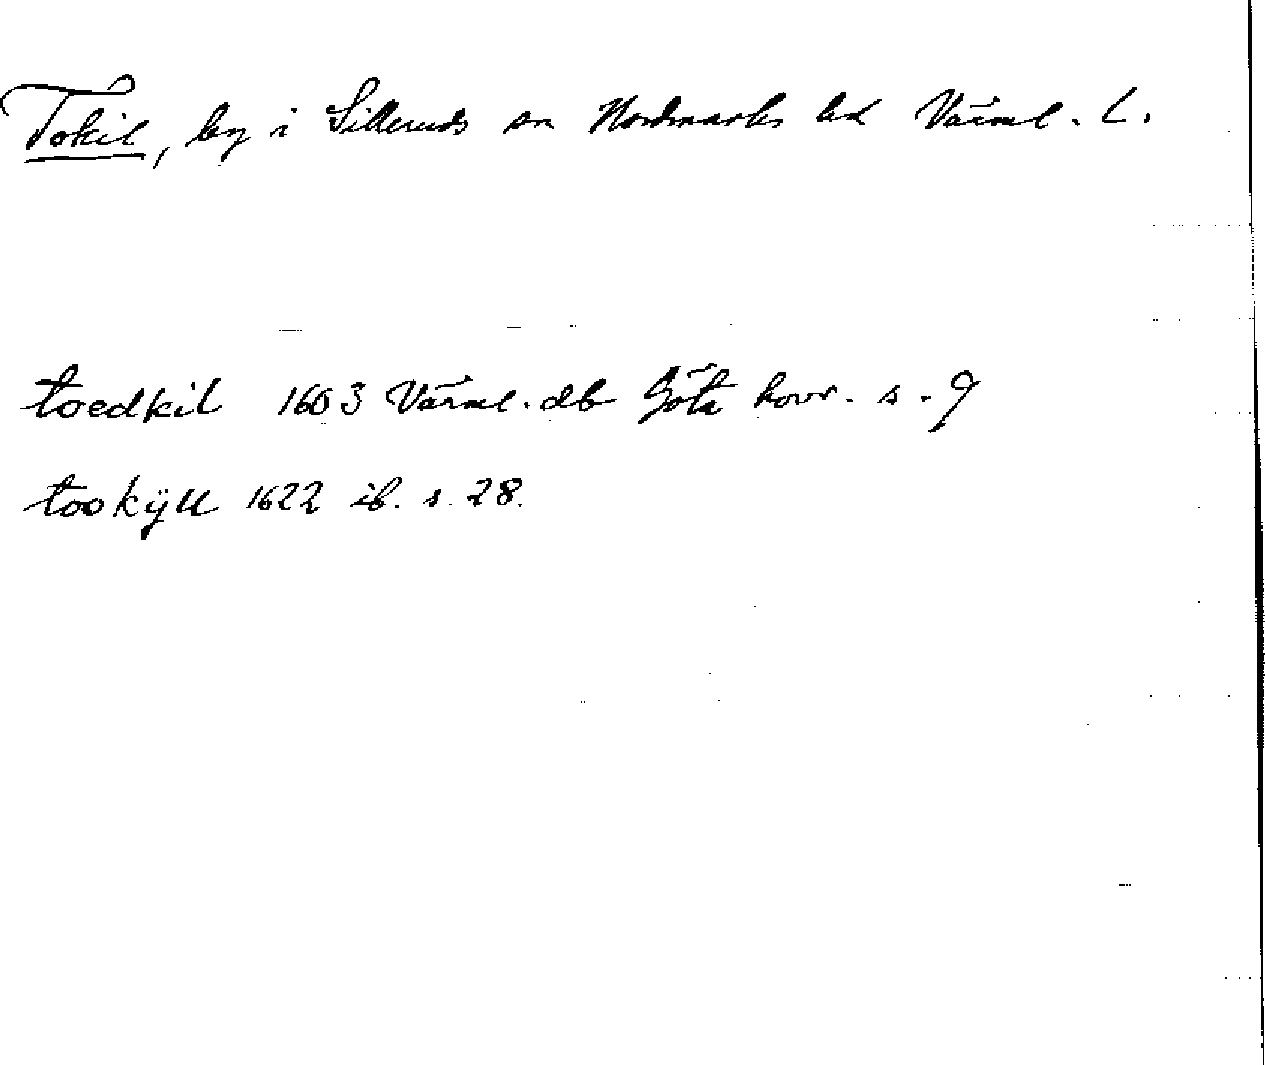 Tokil, by i Silleruds sn Nordmarks hd Värml. L.
toedkil 1603 Värml. db Göta hovr. s. 9
tookÿll 1622 ib. s. 28.